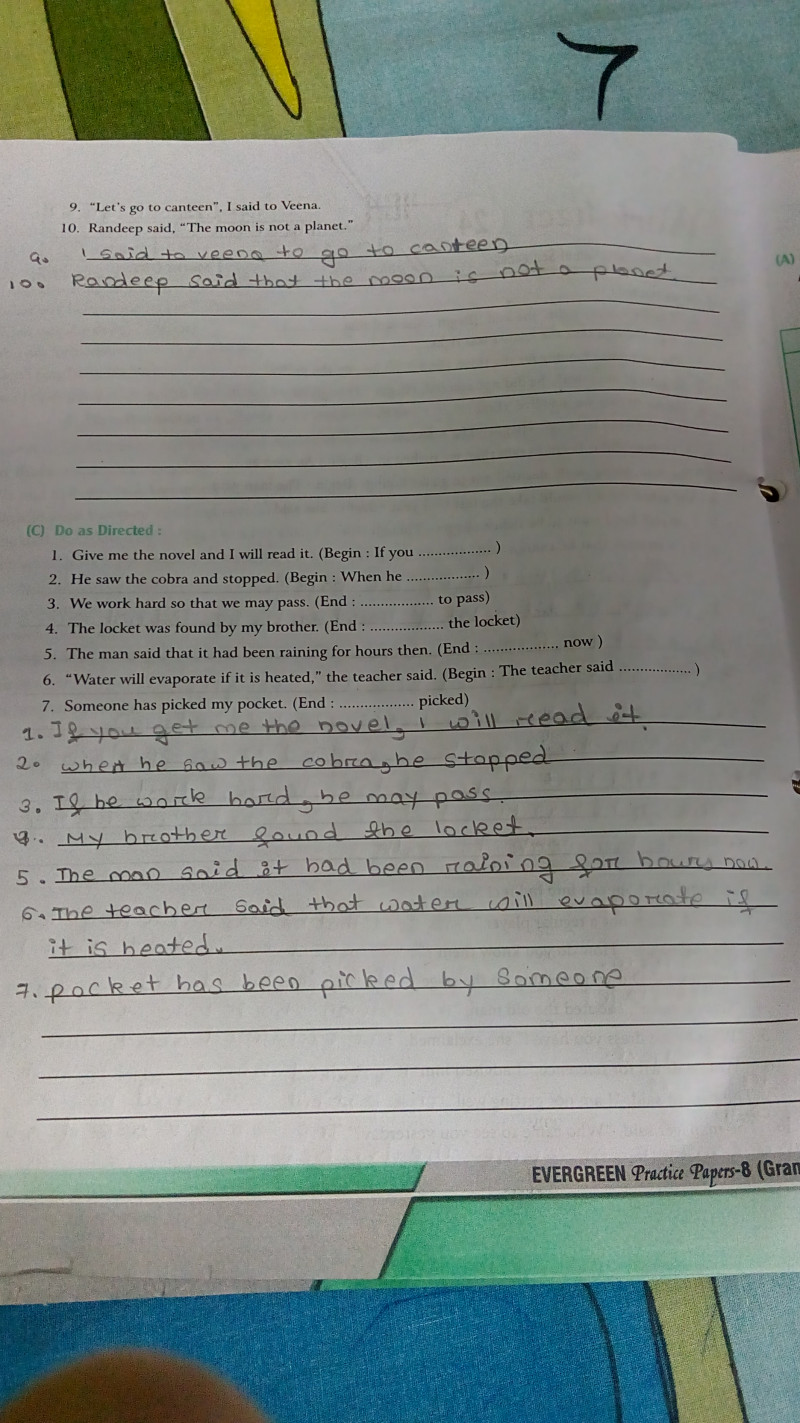 7
9. "Let's go to canteen", I said to Veena.
10. Randeep said, "The moon is not a planet."
9. I said to veena to go to canteen
10. Randeep said that the moon is not a planet.
(A)
(C) Do as Directed :
1. Give me the novel and I will read it. (Begin : If you .................. )
2. He saw the cobra and stopped. (Begin : When he .................. )
3. We work hard so that we may pass. (End : .................. to pass)
4. The locket was found by my brother. (End : .................. the locket)
5. The man said that it had been raining for hours then. (End : .................. now )
6. "Water will evaporate if it is heated," the teacher said. (Begin : The teacher said .................. )
7. Someone has picked my pocket. (End : .................. picked)
1. If you get me the novel, I will read it.
2. when he saw the cobra, he stopped
3. If he work hard, he may pass.
4. My brother found the locket.
5. The man said it had been raining for hours now.
6. The teacher said that water will evaporate if
it is heated.
7. pocket has been picked by someone
EVERGREEN Practice Papers-8 (Gran